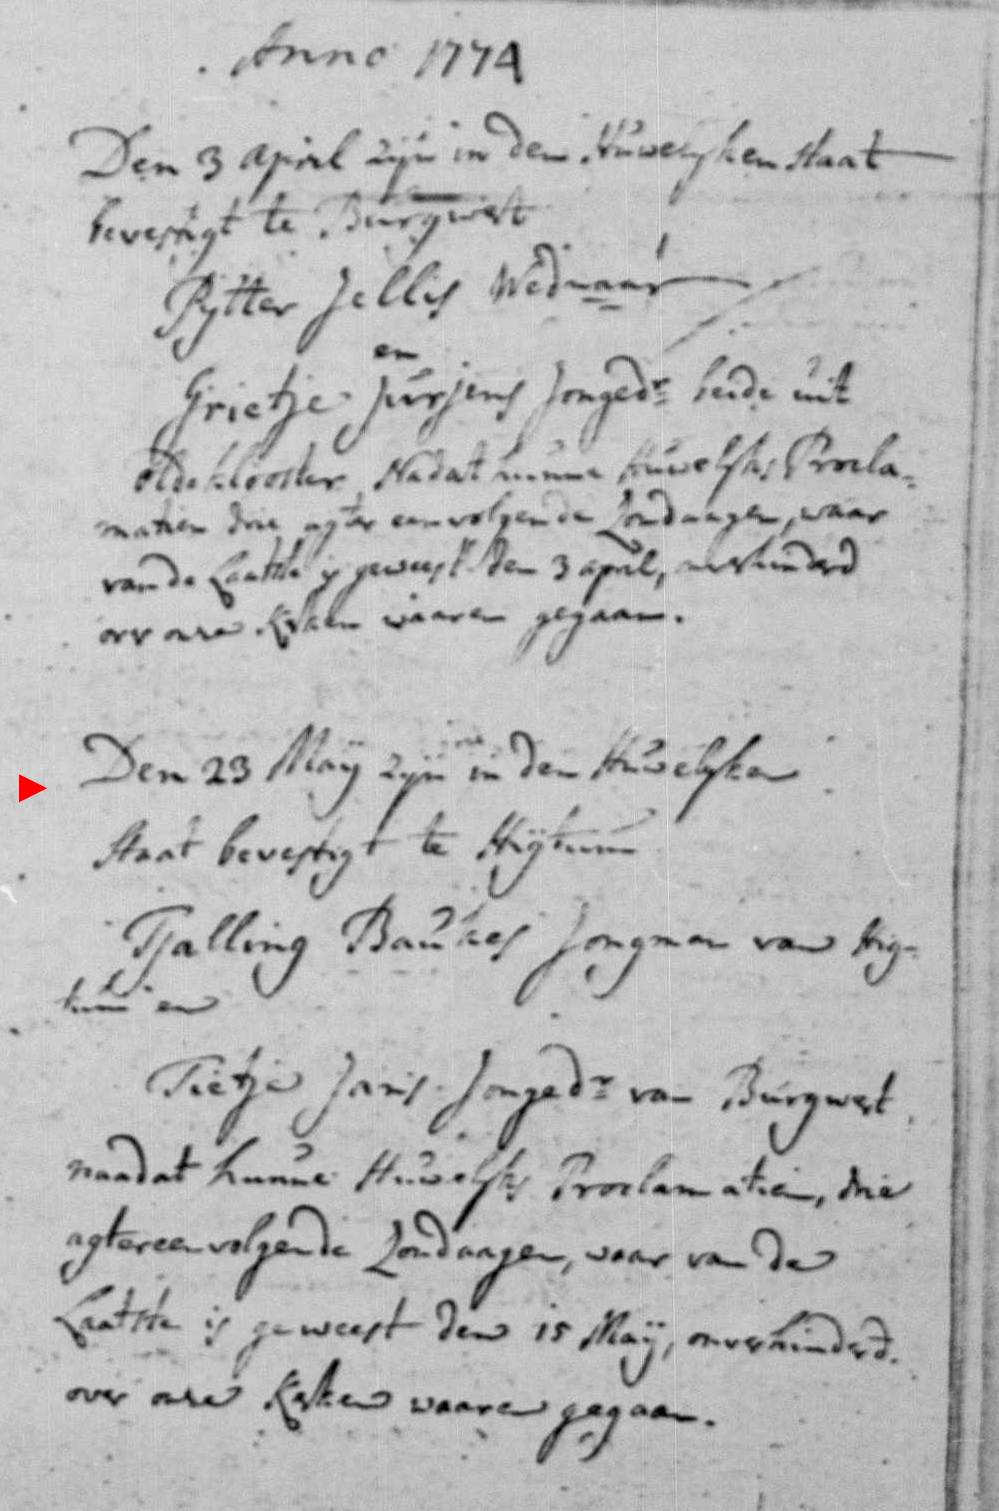 Anno 1774
Den 3 april zijn in den Huwelyken staat
bevestigt te Burgwert
Pytter Jellis Weduaar
en
Grietje Jurjens Jonged.r beide uit
oldeklooster. Nadat hunne Huwelyks Procla=
matien drie agter eenvolgende Zondaagen, waar
van de Laatste is geweest den 3 april, onverhinderd
over onze Kerken waaren gegaan.
Den 23 Maij zijn in den Huwelyken
staat bevestigt te Hijtum
Tjalling Baukes Jongman van Hig=
tum en
Tietje Jans Jonged.r van Burgwert
naadat hunne Huwelyks Proclamatien, drie
agtereenvolgende Zondaagen, waar van de
Laatste is geweest den 15 Maij, onverhinderd.
over onze Kerken waaren gegaan.